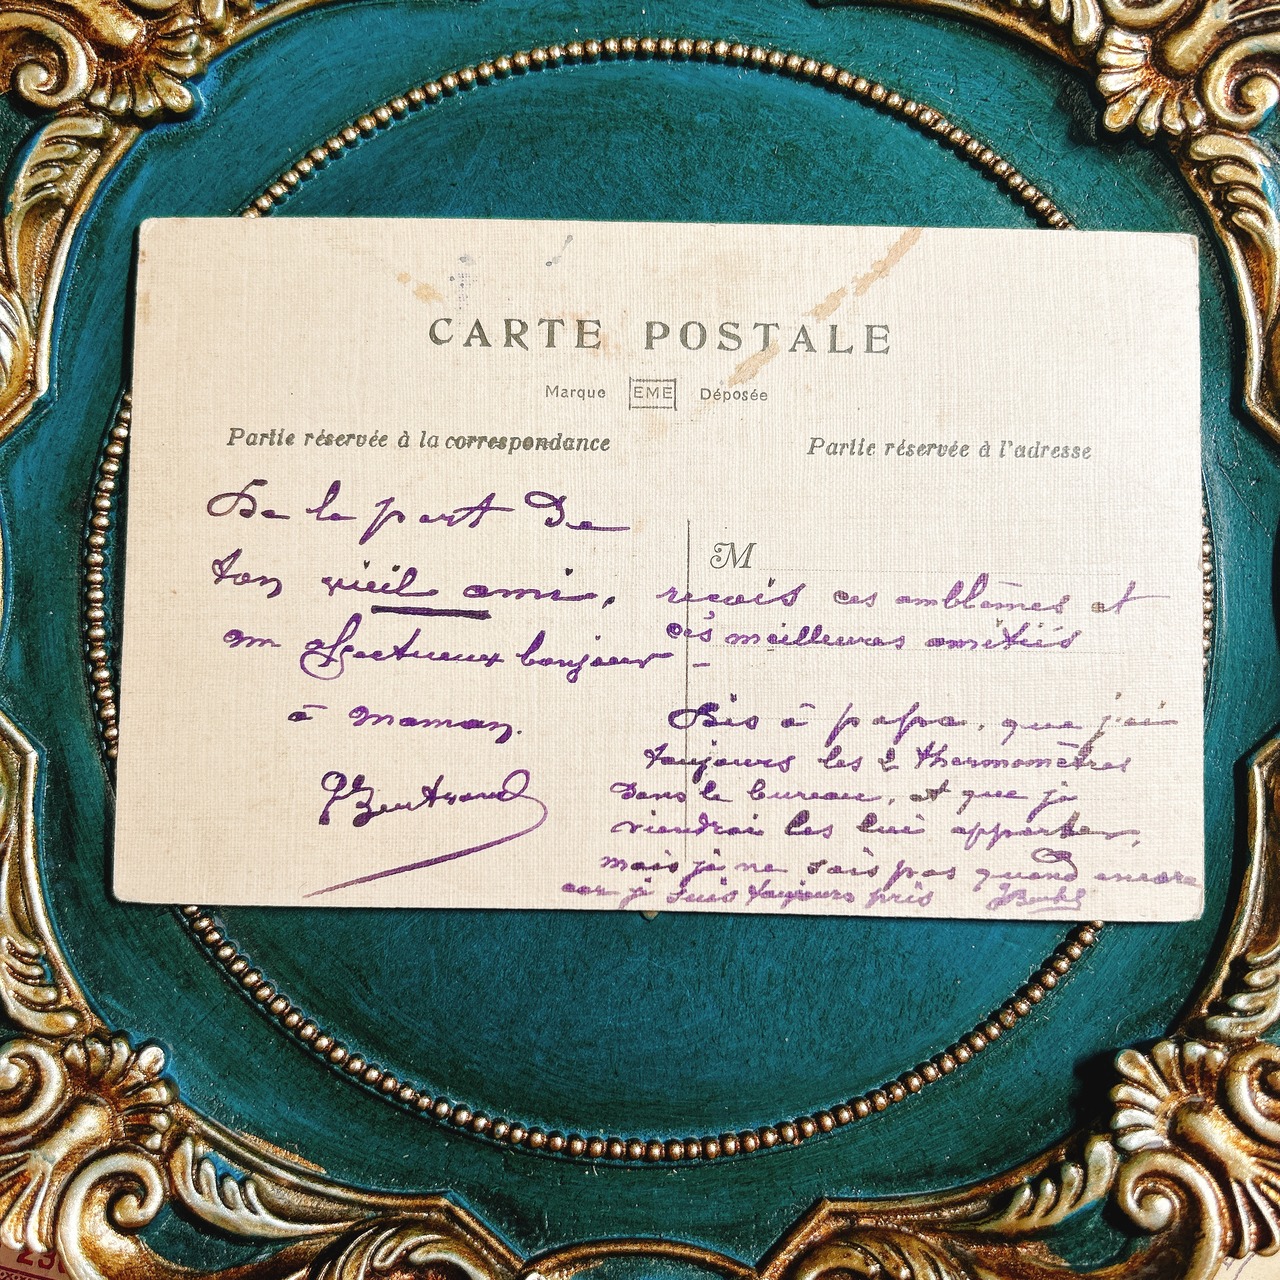 CARTE POSTALE
Marque EME Déposée
Partie réservée à la correspondance
De la part de
ton vieil ami,
un affectueux bonjour
à maman.
Bertrand
Partie réservée à l'adresse
M
reçois ces emblèmes et
ces meilleures amitiés
Dis à papa, que j'ai
toujours les 2 thermomètres
dans le bureau, et que je
viendrai les lui apporter,
mais je ne sais pas quand encore
car je suis toujours pris